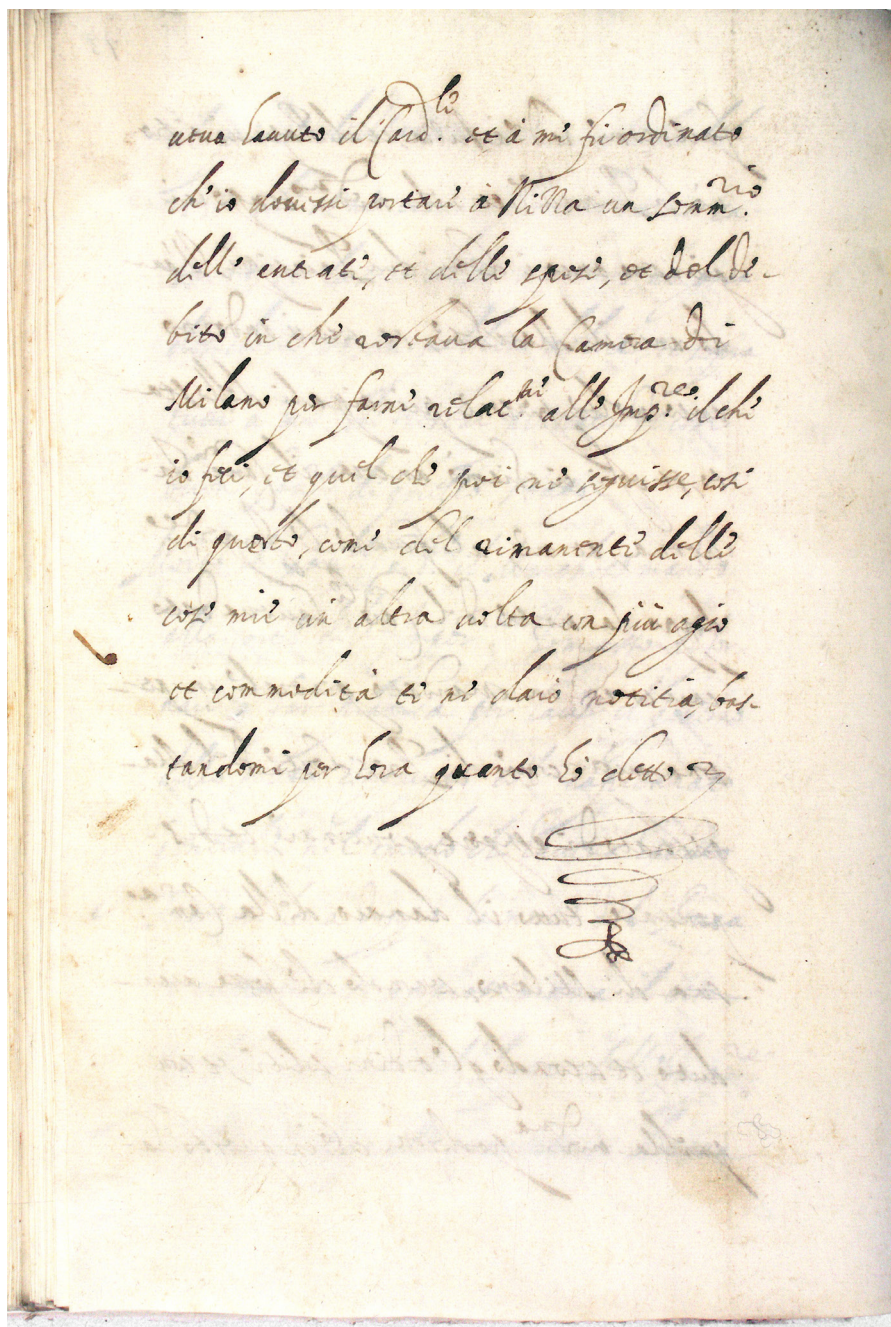 ueua hauuto il Card.le et à me fù ordinato
ch'io douessi portare à Nizza un somm.rio
delle entrate, et delle spese, et del de-
bito in che restaua la Camera di
Milano per farne relat.ne all'Imp.re il che
io feci, et quel che poi ne seguisse, cosi
di questo, come del rimanente delle
cose mie un altra uolta con più agio
et commodità te ne darò notitia, bas-
tandomi per hora quanto hò detto